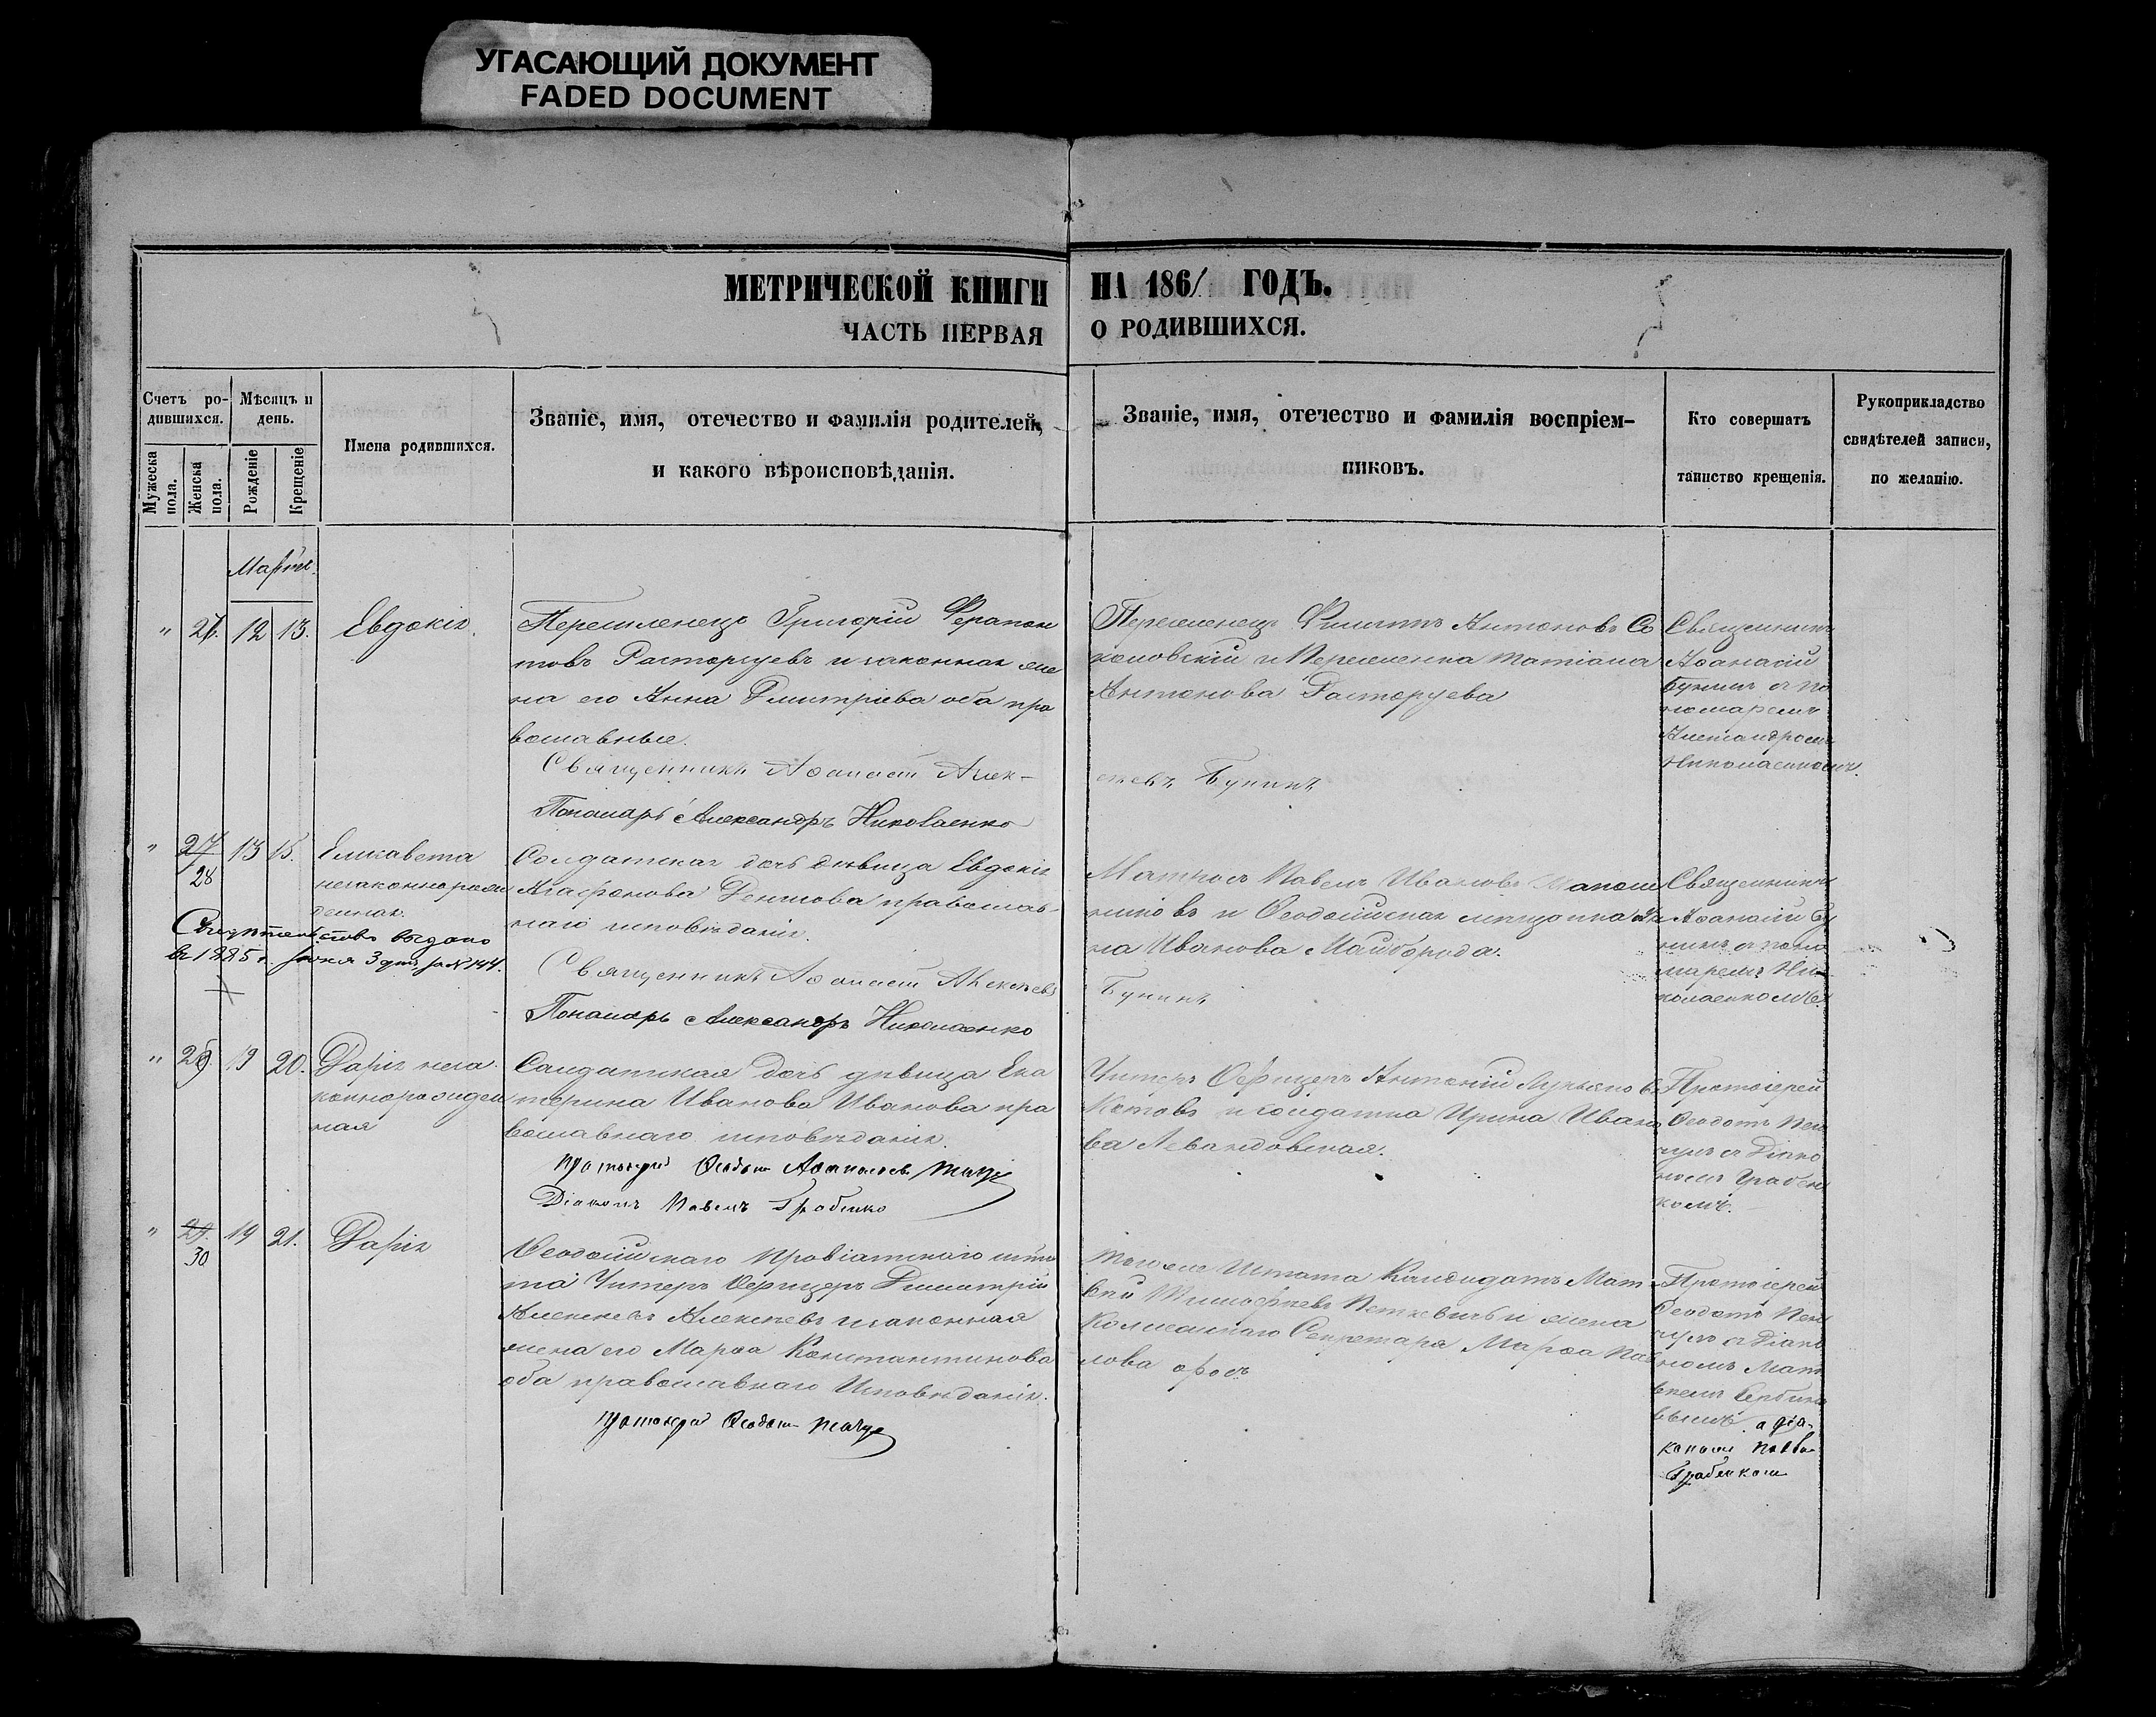 УГАСАЮЩИЙ ДОКУМЕНТ
FADED DOCUMENT
МЕТРИЧЕСКОЙ КНИГИ НА 1861 ГОДЪ.
ЧАСТЬ ПЕРВАЯ О РОДИВШИХСЯ.
Счетъ ро-
дившихся.
Мужеска
пола.
Женска
пола.
Мѣсяцъ и
день.
Рожденіе
Крещеніе
Имена родившихся.
Званіе, имя, отечество и фамилія родителей,
и какого вѣроисповѣданія.
Званіе, имя, отечество и фамилія воспріем-
никовъ.
Кто совершатъ
таинство крещенія.
Рукоприкладство
свидѣтелей записи,
по желанію.
Мартъ.
" 12 13. Евдокія.
Переселенецъ Григорій Ферапон
товъ Расторгуевъ и законная же
на его Анна Дмитріева оба пра
вославные.
Священникъ Аѳанасій Алек-
Понамарь Александръ Николаенко
Переселенецъ Филиппъ Антоновъ Со
коловскій и Переселенка Татіана
Антонова Расторгуева
сѣевъ Бунинъ
Священникъ
Аѳанасій
Бунинъ съ по
номаремъ
Александромъ
Николаенкомъ.
" 27
28
13 15. Елисавета
незаконнорож
денная.
Свидѣтельство выдано
въ 1885 г. 3 дня за № 144.
Солдатская дочь дѣвица Евдокія
Агафонова православ-
наго исповѣданія.
Священникъ Аѳанасій Алексѣевъ
Понамарь Александръ Николаенко
Матросъ Павелъ Ивановъ
никовъ и Ѳеодосійская мѣщанка Ан
на Иванова Майборода.
Бунинъ
Священникъ
Аѳанасій Бу
нинъ съ поно
маремъ Ни-
колаенкомъ.
" 29. 19 20. Дарія неза
коннорожден
ная
Солдатская дочь дѣвица Ека
терина Иванова Иванова пра
вославнаго исповѣданія.
Протоіерей Ѳеодотъ
Діаконъ Павелъ Грабенко
Унтеръ Офицеръ Антоній Лукьяновъ
Котовъ и солдатка Ирина Ивано
ва Левандовская.
Протоіерей
Ѳеодотъ
съ Діако
номъ Грабен
комъ.
" 29.
30
19 21. Дарія
Ѳеодосійскаго Провіантскаго шта
та Унтеръ Офицеръ Димитрій
Алексѣевъ Алексѣевъ и законная
жена его Марѳа Константинова
оба православнаго Исповѣданія.
Протоіерей Ѳеодотъ
Тогоже Штата Кандидатъ Мат
вѣй Тимофѣевъ Петкевичъ и жена
Коллежскаго Секретаря Марѳа Пав
лова
Протоіерей
Ѳеодотъ
съ Діако
номъ Мат
вѣемъ
а діа-
кономъ Павло
Грабенком